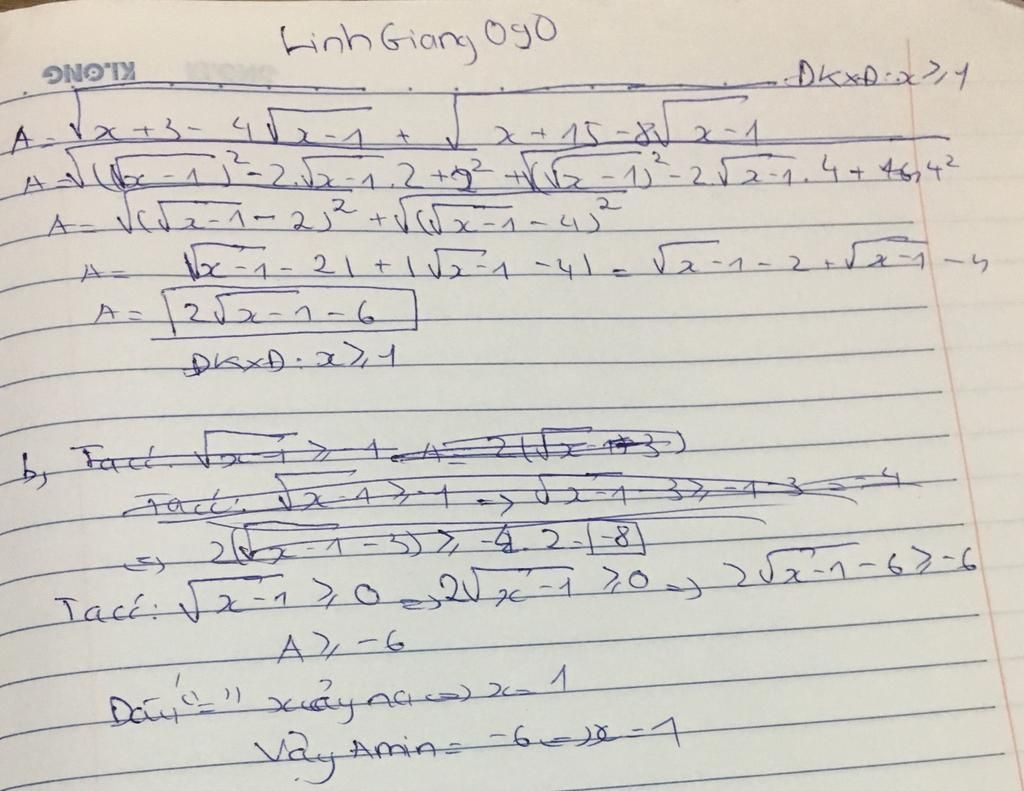 Linh Giang 0g0
KLONG
ĐKXĐ: x ≥ 1
A = √(x + 3 - 4√(x-1)) + √(x + 15 - 8√(x-1))
A = √((√(x-1))² - 2.√(x-1).2 + 2²) + √((√(x-1))² - 2.√(x-1).4 + 4²
A = √((√(x-1) - 2)²) + √((√(x-1) - 4)²)
A = |√(x-1) - 2| + |√(x-1) - 4| = √(x-1) - 2 + √(x-1) - 4
A = 2√(x-1) - 6
ĐKXĐ: x ≥ 1
b, Ta có: √(x-1) ≥ -1 A = 2(√(x-1) - 3)
Ta có: √(x-1) ≥ -1 => √(x-1) - 3 ≥ -1-3 = -4
=> 2(√(x-1) - 3) ≥ -4.2 = -8
Ta có: √(x-1) ≥ 0 => 2√(x-1) ≥ 0 => 2√(x-1) - 6 ≥ -6
A ≥ -6
Dấu "=" xảy ra <=> x = 1
Vậy Amin = -6 <=> x = 1